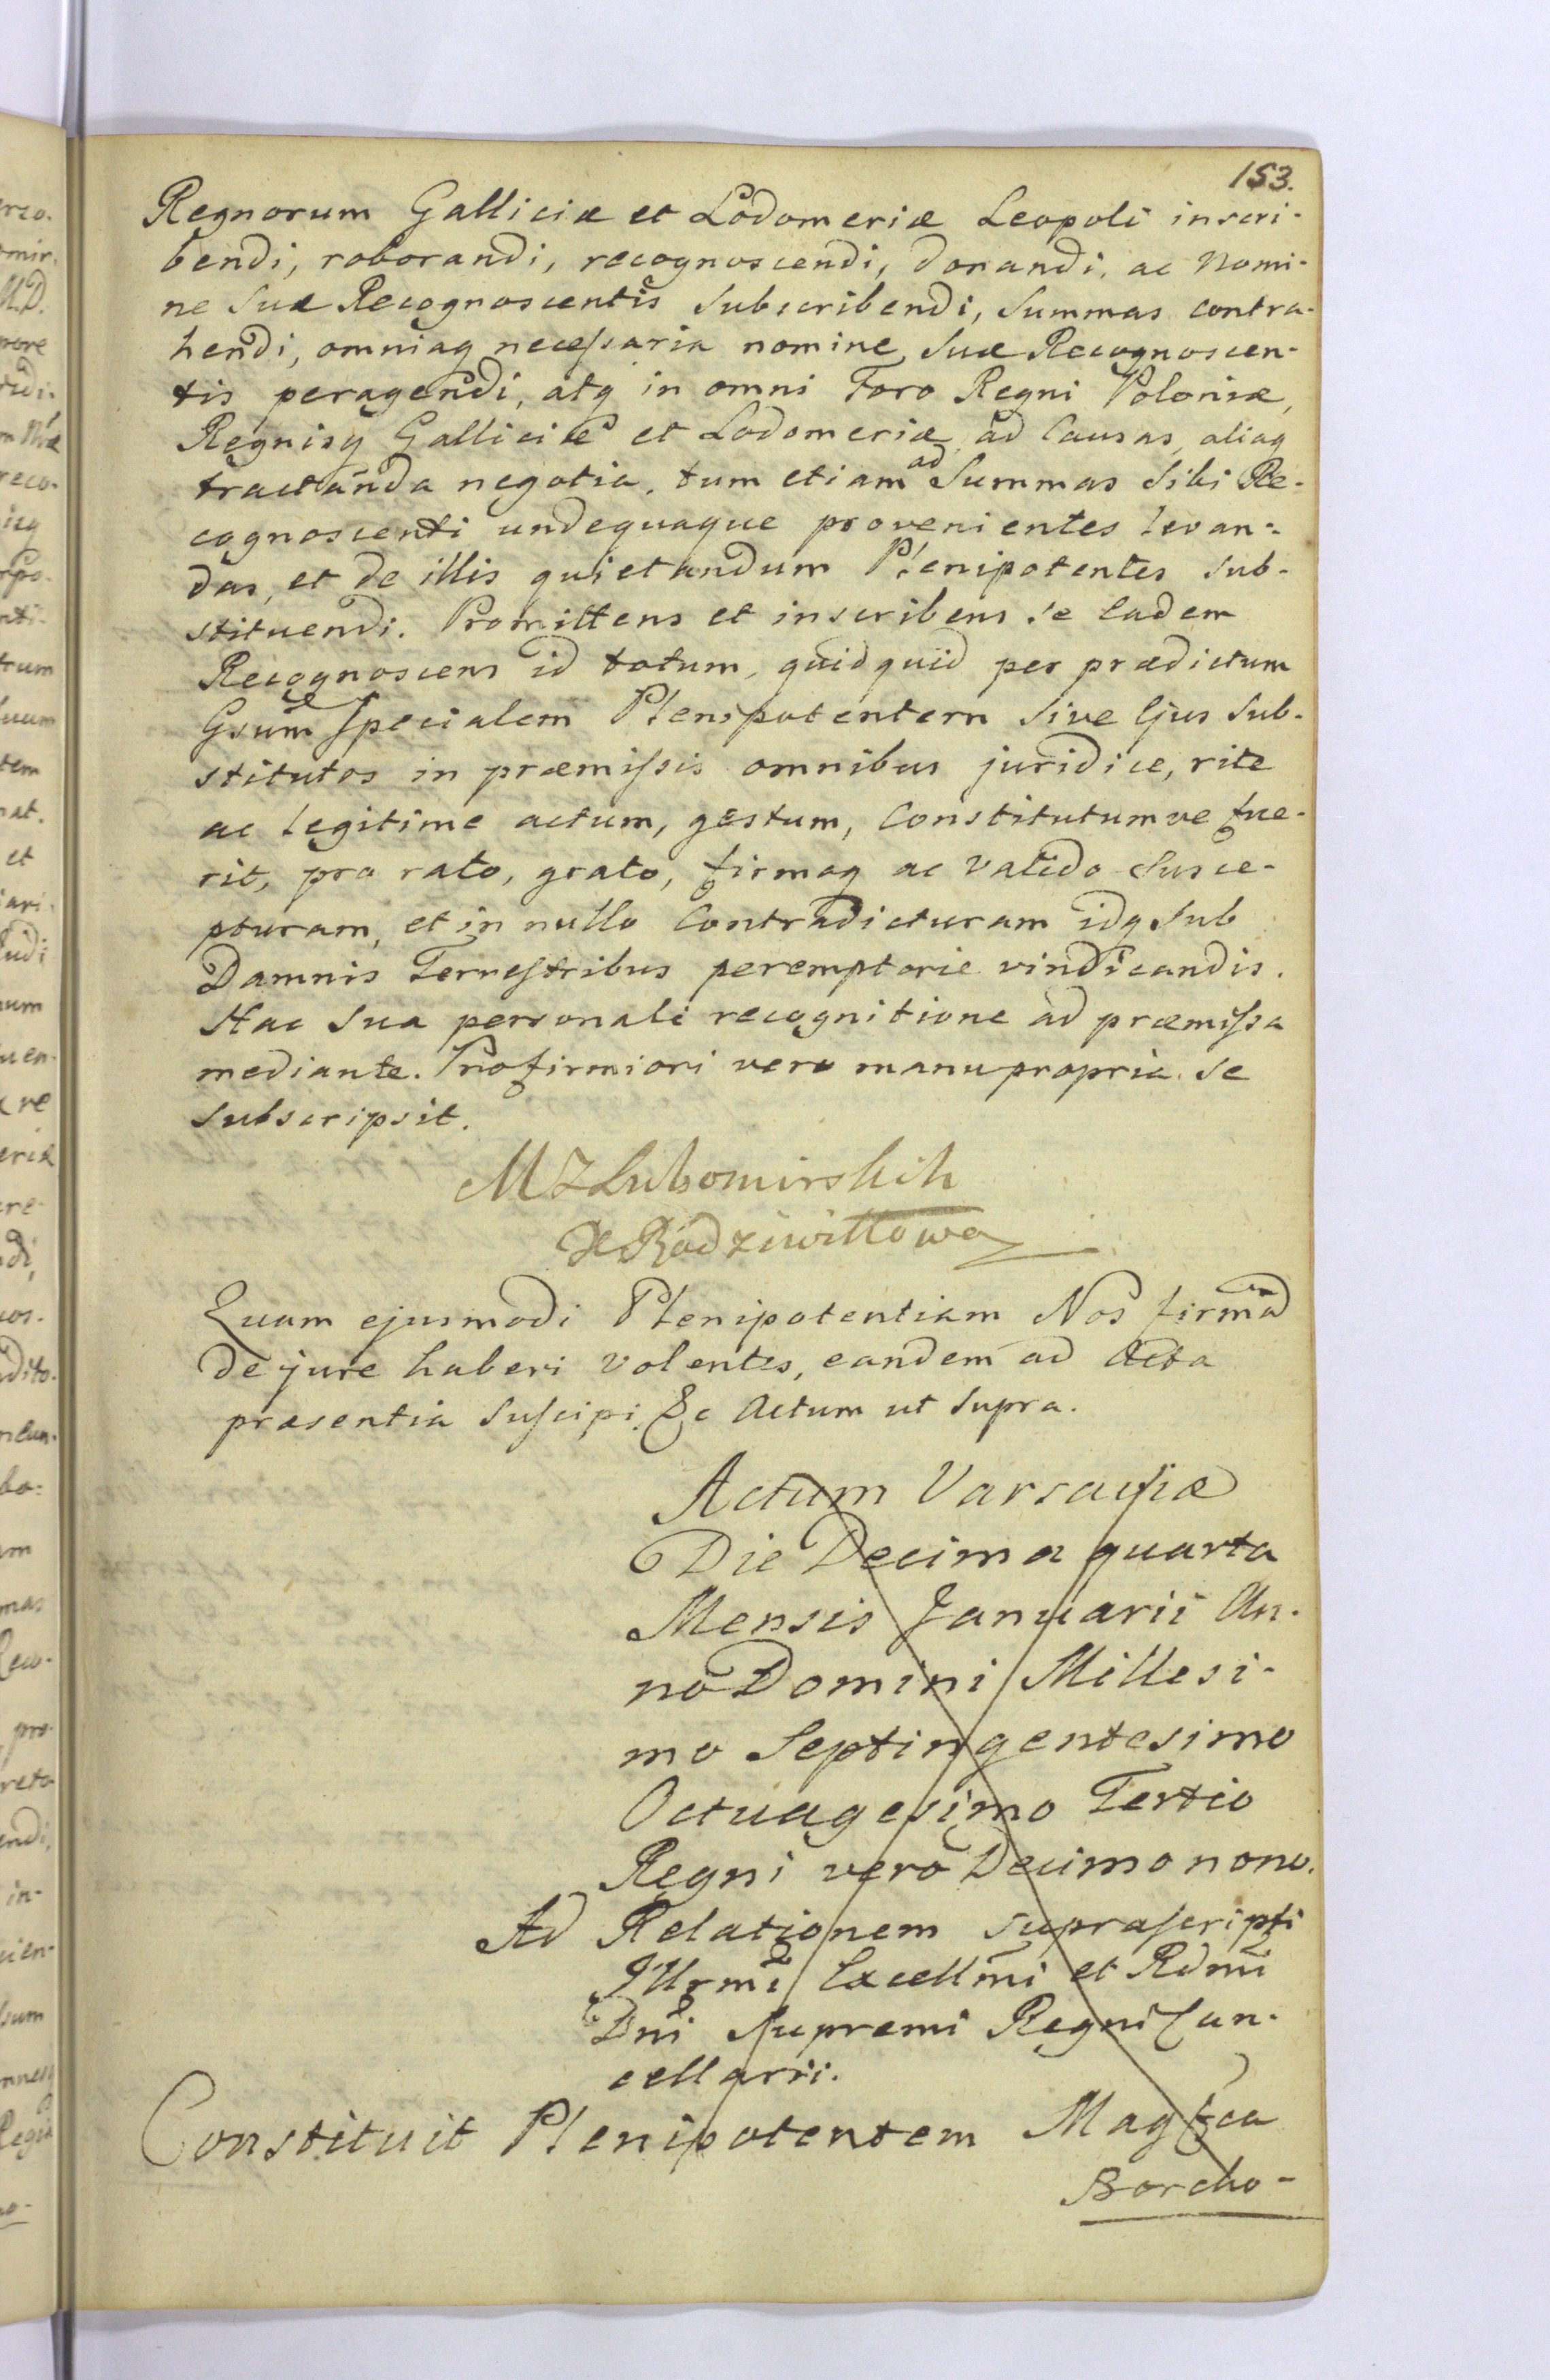 153.
Regnorum Galliciæ et Lodomeriæ Leopoli inscri-
bendi, roborandi, recognoscendi, donandi, ac Nomi-
ne Suæ Recognoscentis Subscribendi, Summas contra-
hendi, omniaq necessaria nomine Suæ Recognoscen-
tis peragendi, atq in omni Foro Regni Poloniæ,
Regnisq Galliciæ et Lodomeriæ ad Causas, aliaq
tractanda negotia, tum etiam ad Summas Sibi Re-
cognoscenti undequaque provenientes levan-
das, et de illis quietandum Plenipotentes Sub-
stituendi. Promittens et inscribens se Eadem
Recognoscens id totum, quidquid per prædictum
Gsum Specialem Plenipotentem Sive Ejus Sub-
stitutos in præmissis omnibus juridice, rite
ac legitime actum, gestum, Constitutumve fue-
rit, pro rato, grato, firmoq ac Valido Susce-
pturam, et in nullo Contradicturam idq Sub
Damnis Terrestribus peremptorie vindicandis.
Hac Sua personali recognitione ad præmissa
mediante. Pro firmiori vero manu propria se
Subscripsit.
M Z Lubomirskich
X Radziwiłłowa
Quam ejusmodi Plenipotentiam Nos firmã
de jure haberi Volentes, eandem ad Acta
præsentia Suscipi &c Actum ut Supra.
Actum Varsaviæ
Die Decima quarta
Mensis Januarii An-
no Domini Millesi-
mo Septingentesimo
Octuagesimo Tertio
Regni vero Decimo nono.
Ad Relationem suprascripti
Illrmi Excellmi et Rdmi
Dni Supremi Regni Can-
cellarii.
Constituit Plenipotentem Magfca
Borcho-